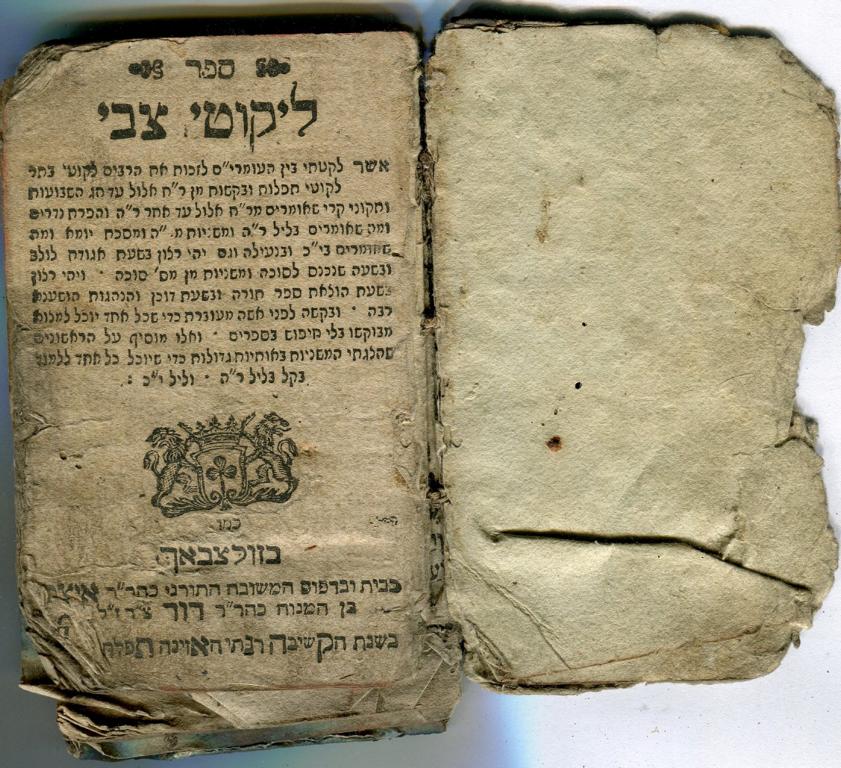 ספר
ליקוטי צבי
אשר לקטתי בין העומרי״ם לזכות את הרבים לקוטי בתר
לקוטי תפלות ובקשות מן ר״ח אלול עד חג השבועות
ותקוני קרי שאומרים מר״ח אלול עד אחר ר״ה והפרת נדרים
ומה שאומרים בליל ר״ה ומשניות מ״ ״ה ומסכת יומא ומה
שאומרים בי״כ ובנעילה וגם יהי רצון בשעת אגודת לולב
ובשעה שנכנס לסוכה ומשניות מן מס׳ סוכה ׳ ויהי רצון
בשעת הוצאת ספר תורה ובשעת דוכן והנהגות הושענא
רבה ׳ ובקשה לפני אשה מעוברת כדי שכל אחד יוכל למצוא
מבוקשו בלי חיפוש בספרים ׳ ואלו מוסיף על הראשונים
שהצגתי המשניות באותיות גדולות כדי שיוכל כל אחד ללמוד
בקל בליל ר״ה ׳ וליל י״כ :
בזולצבאך
בבית ובדפוס המשובח התורני כהר״ר איצק
בן המנוח כהר״ר דוד צ״ד ז״ל
בשנת הקשיבה רנתי האזינה תפלתי